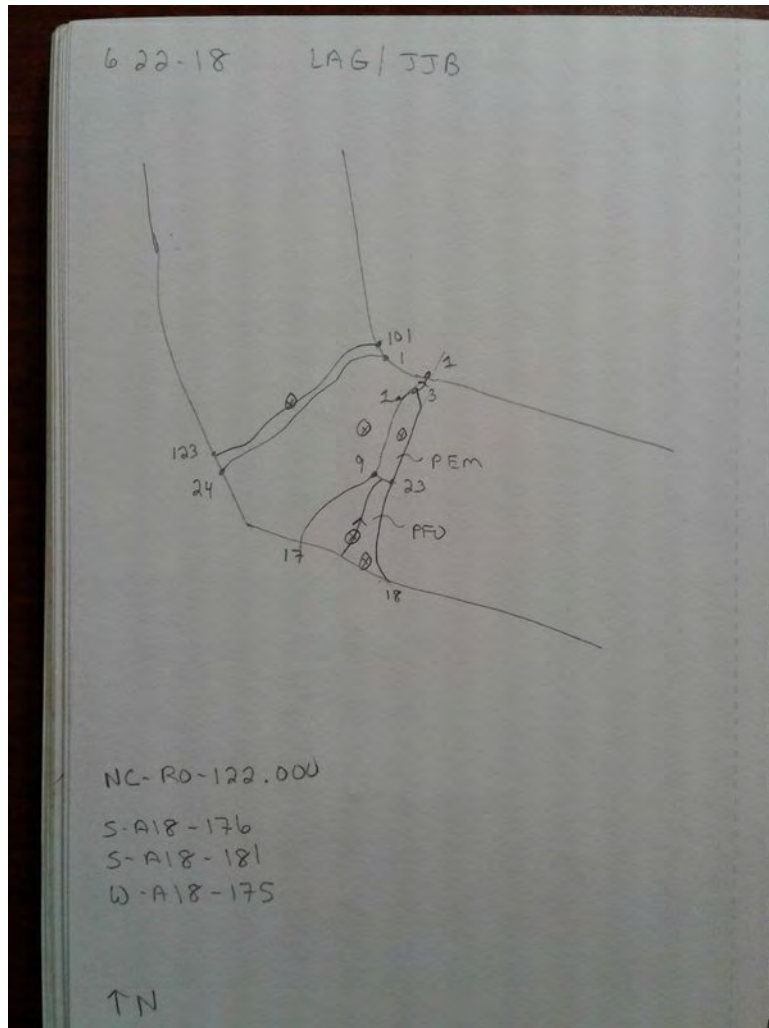 6 22-18 LAG/JJB
101
1
1
1 3
123
9 PEM
24 23
PFO
17
18
NC-RO-122.000
S-A18-176
S-A18-181
W-A18-175
↑N